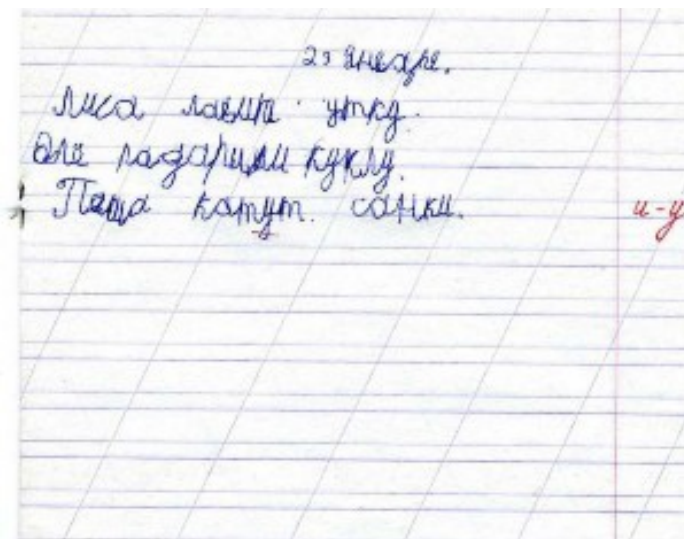 23 января.
Лиса лавит утку.
Оле падарили куклу.
Паша катут санки.
и-у